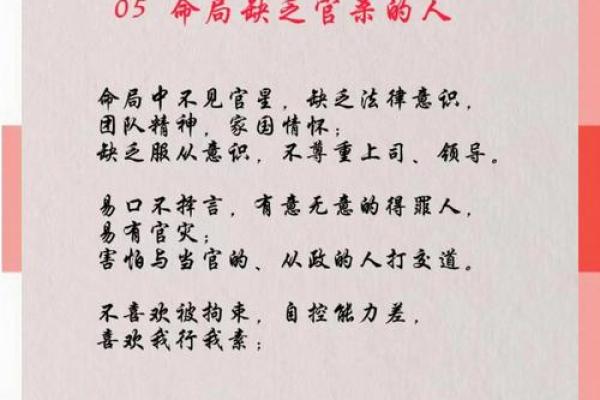 05 命局缺乏官杀的人
命局中不见官星，缺乏法律意识，
团队精神，家国情怀；
缺乏服从意识，不尊重上司、领导。
易口不择言，有意无意的得罪人，
易有官灾；
害怕与当官的、从政的人打交道。
不喜欢被拘束，自控能力差，
喜欢我行我素；